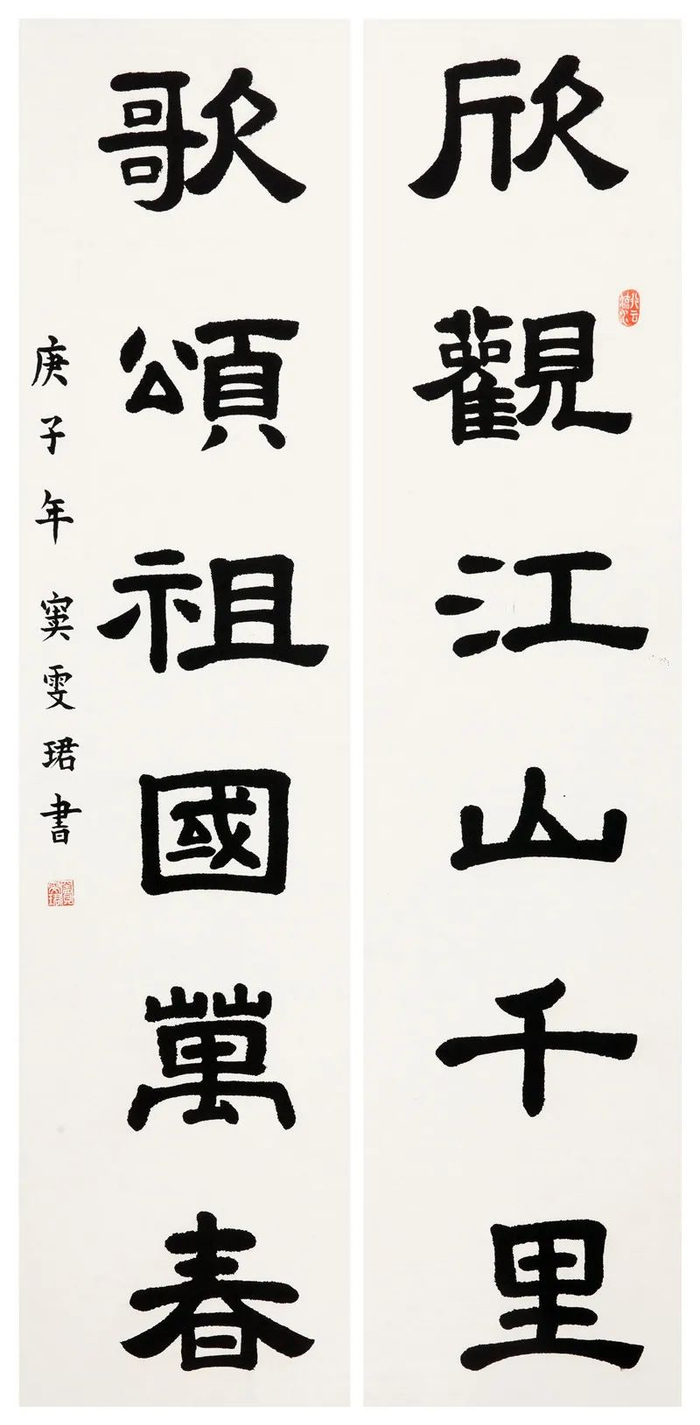 欣觀江山千里
歌頌祖國萬春
庚子年 窦雯珺書